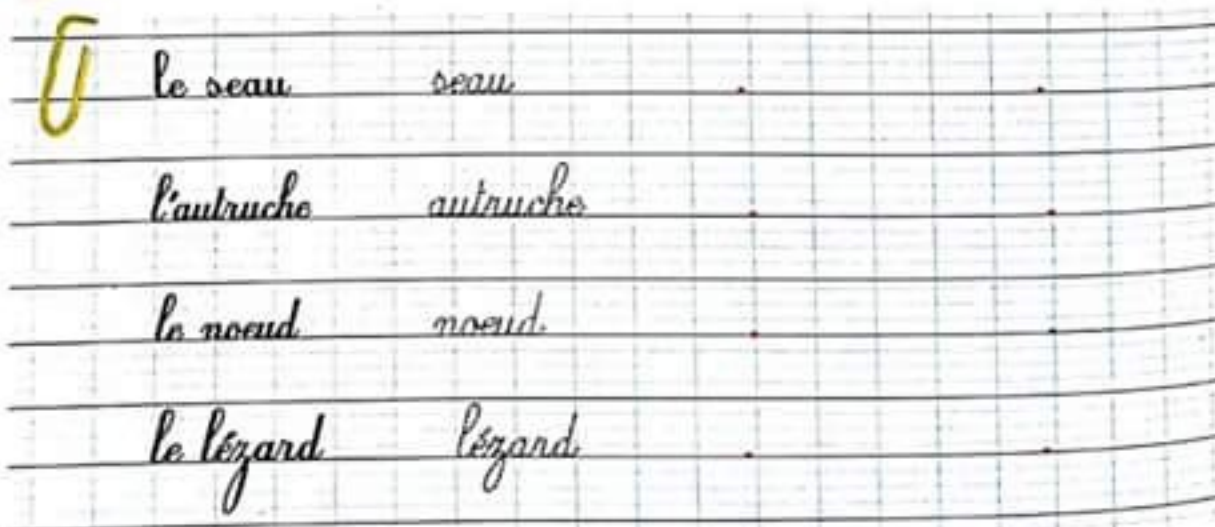 le seau seau
l'autruche autruche
le noeud noeud
le lézard lézard